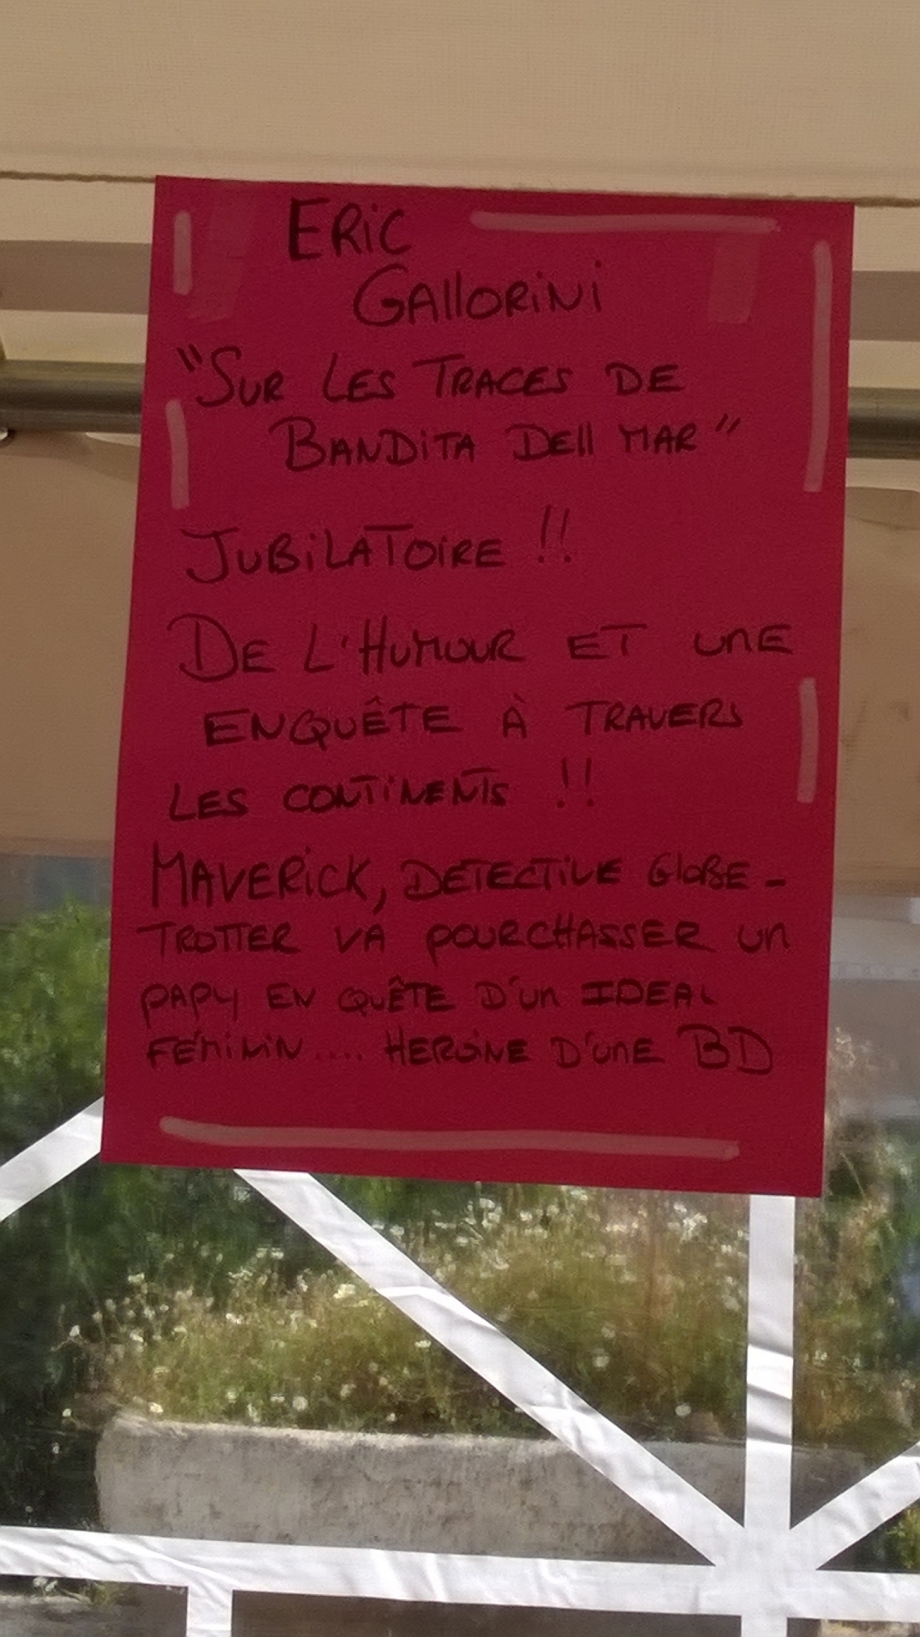 ERiC
GAllORiNi
"SUR LES TRACES DE
BANDiTA DEll MAR"
JUBiLATOIRE !!
DE L'HUMOUR ET UNE
ENQUÊTE À TRAVERS
LES CONTiNENTS !!
MAVERiCK, DETECTiVE GloBE-
TROTTER VA POURCHASSER UN
PAPY EN QUÊTE D'UN IDEAL
FÉMiNiN .... HEROïNE D'UNE BD